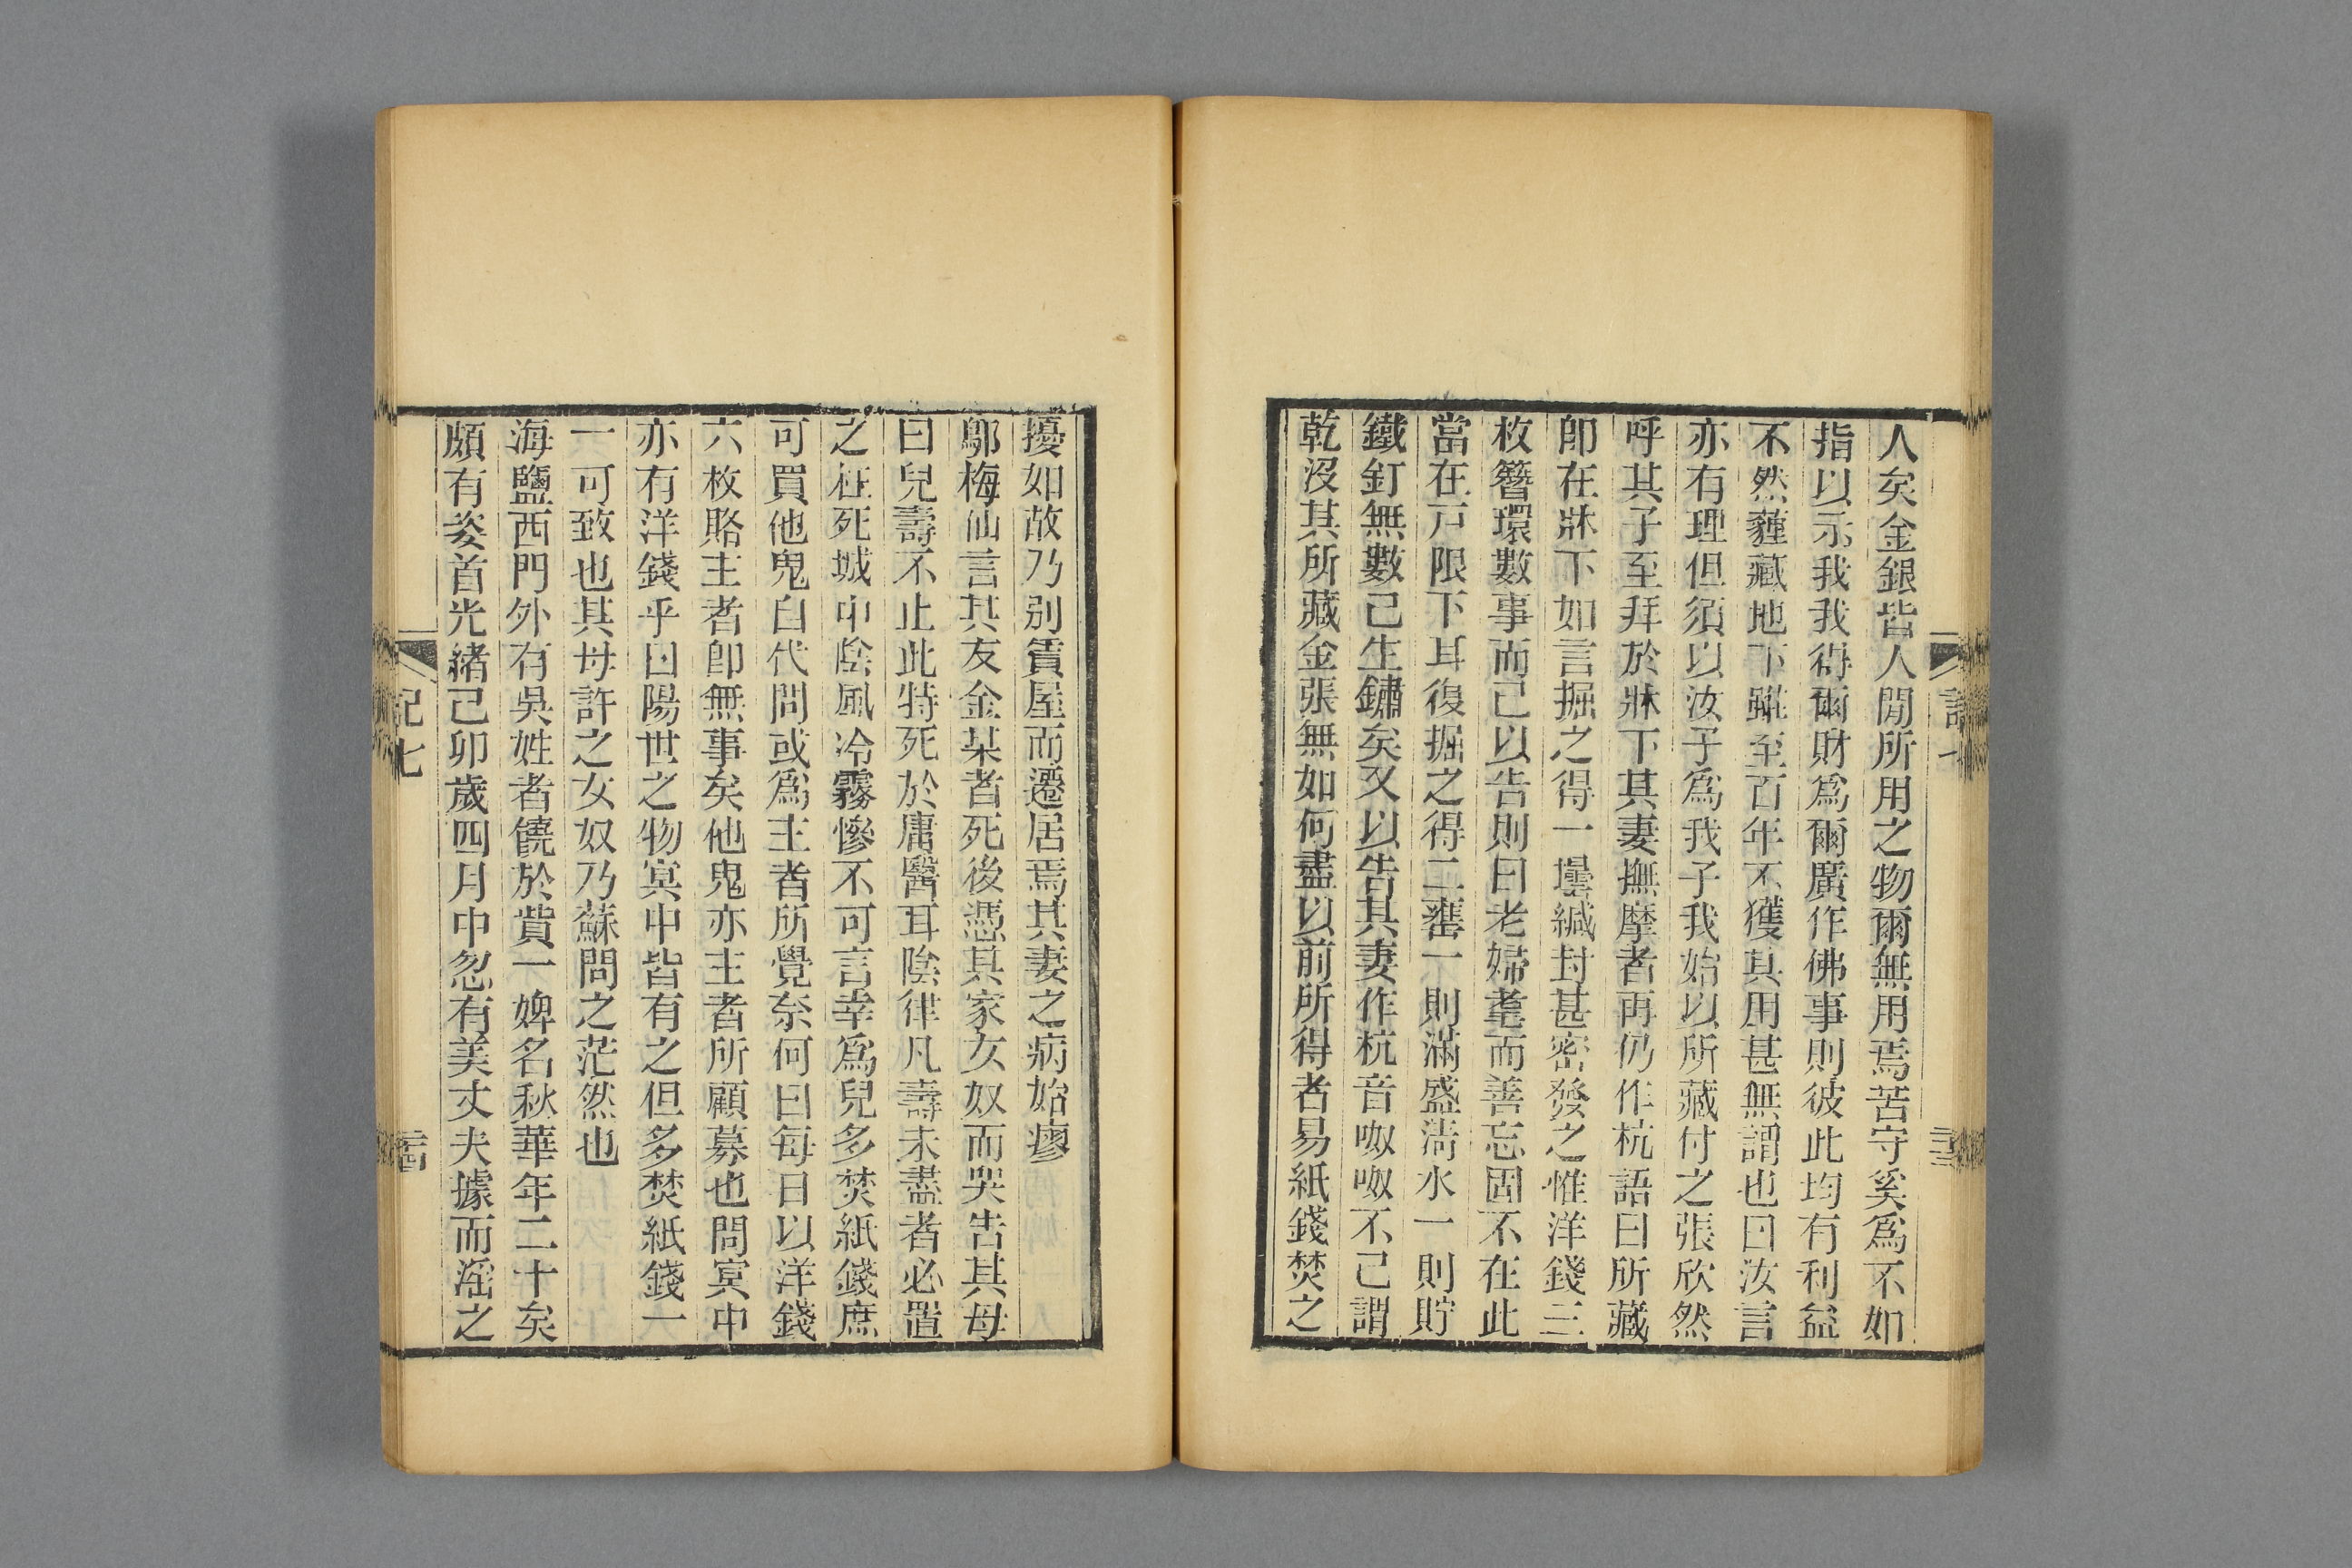 人矣金銀皆人閒所用之物爾無用焉苦守奚爲不如
指以示我我得爾財爲爾廣作佛事則彼此均有利益
不然薶藏地下雖至百年不獲其用甚無謂也曰汝言
亦有理但須以汝子爲我子我始以所藏付之張欣然
呼其子至拜於牀下其妻撫摩者再仍作杭語曰所藏
卽在牀下如言掘之得一壜緘封甚密發之惟洋錢三
枚簪環數事而已以告則曰老婦耄而善忘固不在此
當在戸限下耳復掘之得二罋一則滿盛淸水一則貯
鐵釘無數已生鏽矣又以告其妻作杭音呶呶不已謂
乾沒其所藏金張無如何盡以前所得者易紙錢焚之
擾如故乃别賃屋而遷居焉其妻之病始瘳
鄔梅仙言其友金某者死後憑其家女奴而哭告其母
曰兒壽不止此特死於庸醫耳陰律凡壽未盡者必置
之枉死城中陰風冷霧慘不可言幸爲兒多焚紙錢庶
可買他鬼自代問或爲主者所覺奈何曰每日以洋錢
六枚賂主者卽無事矣他鬼亦主者所顧募也問冥中
亦有洋錢乎曰陽世之物冥中皆有之但多焚紙錢一
一可致也其母許之女奴乃蘇問之茫然也
海鹽西門外有吳姓者饒於貲一婢名秋華年二十矣
頗有姿首光緒己卯歲四月中忽有美丈夫據而淫之
記七